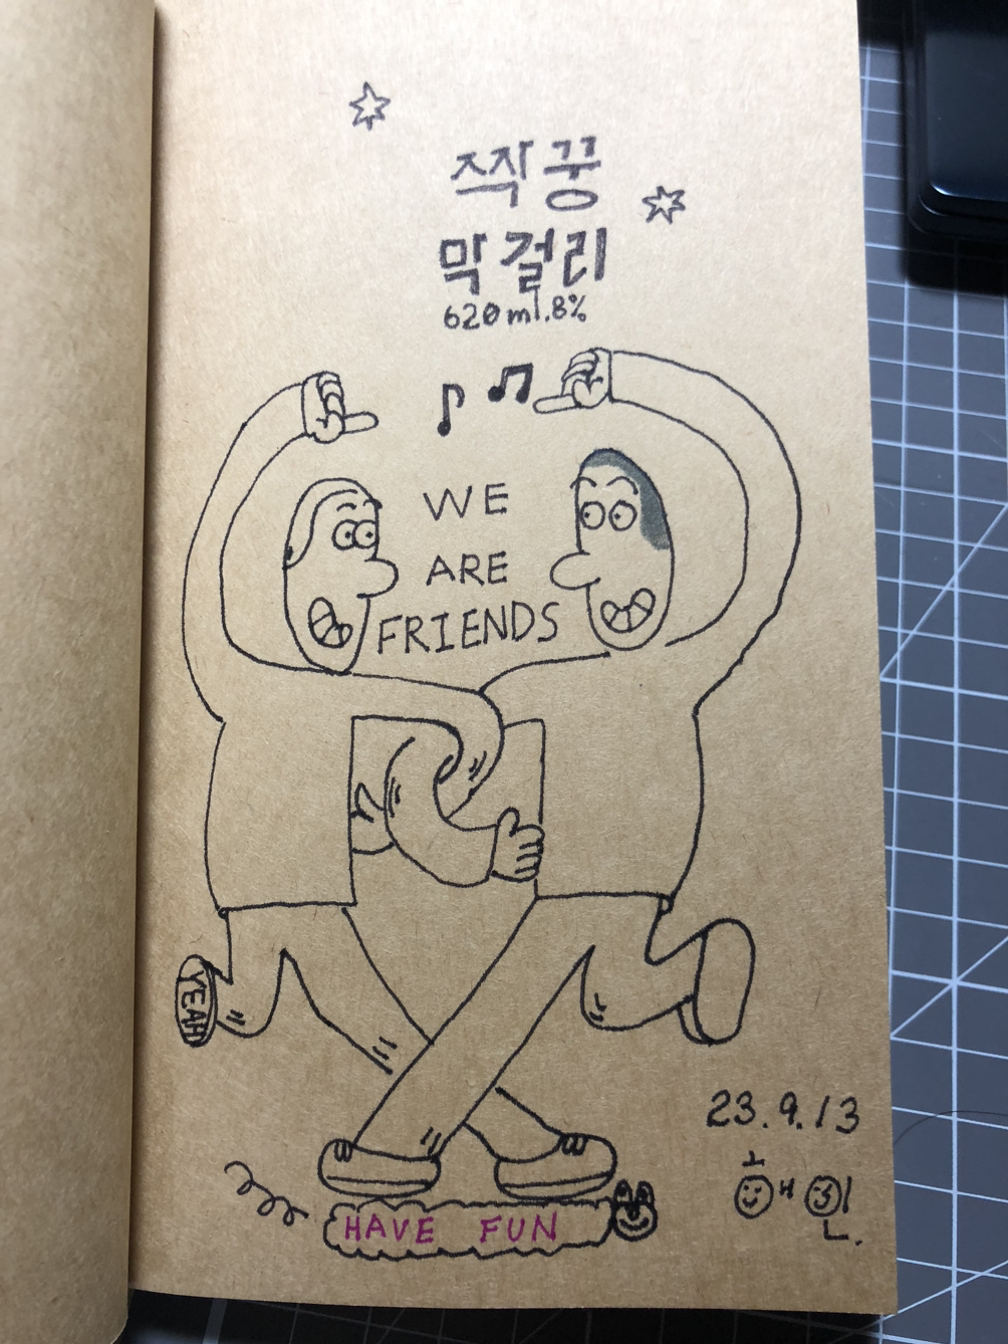 짝꿍
막걸리
620ml.8%
WE
ARE
FRIENDS
YEAH
23.9.13
HAVE FUN